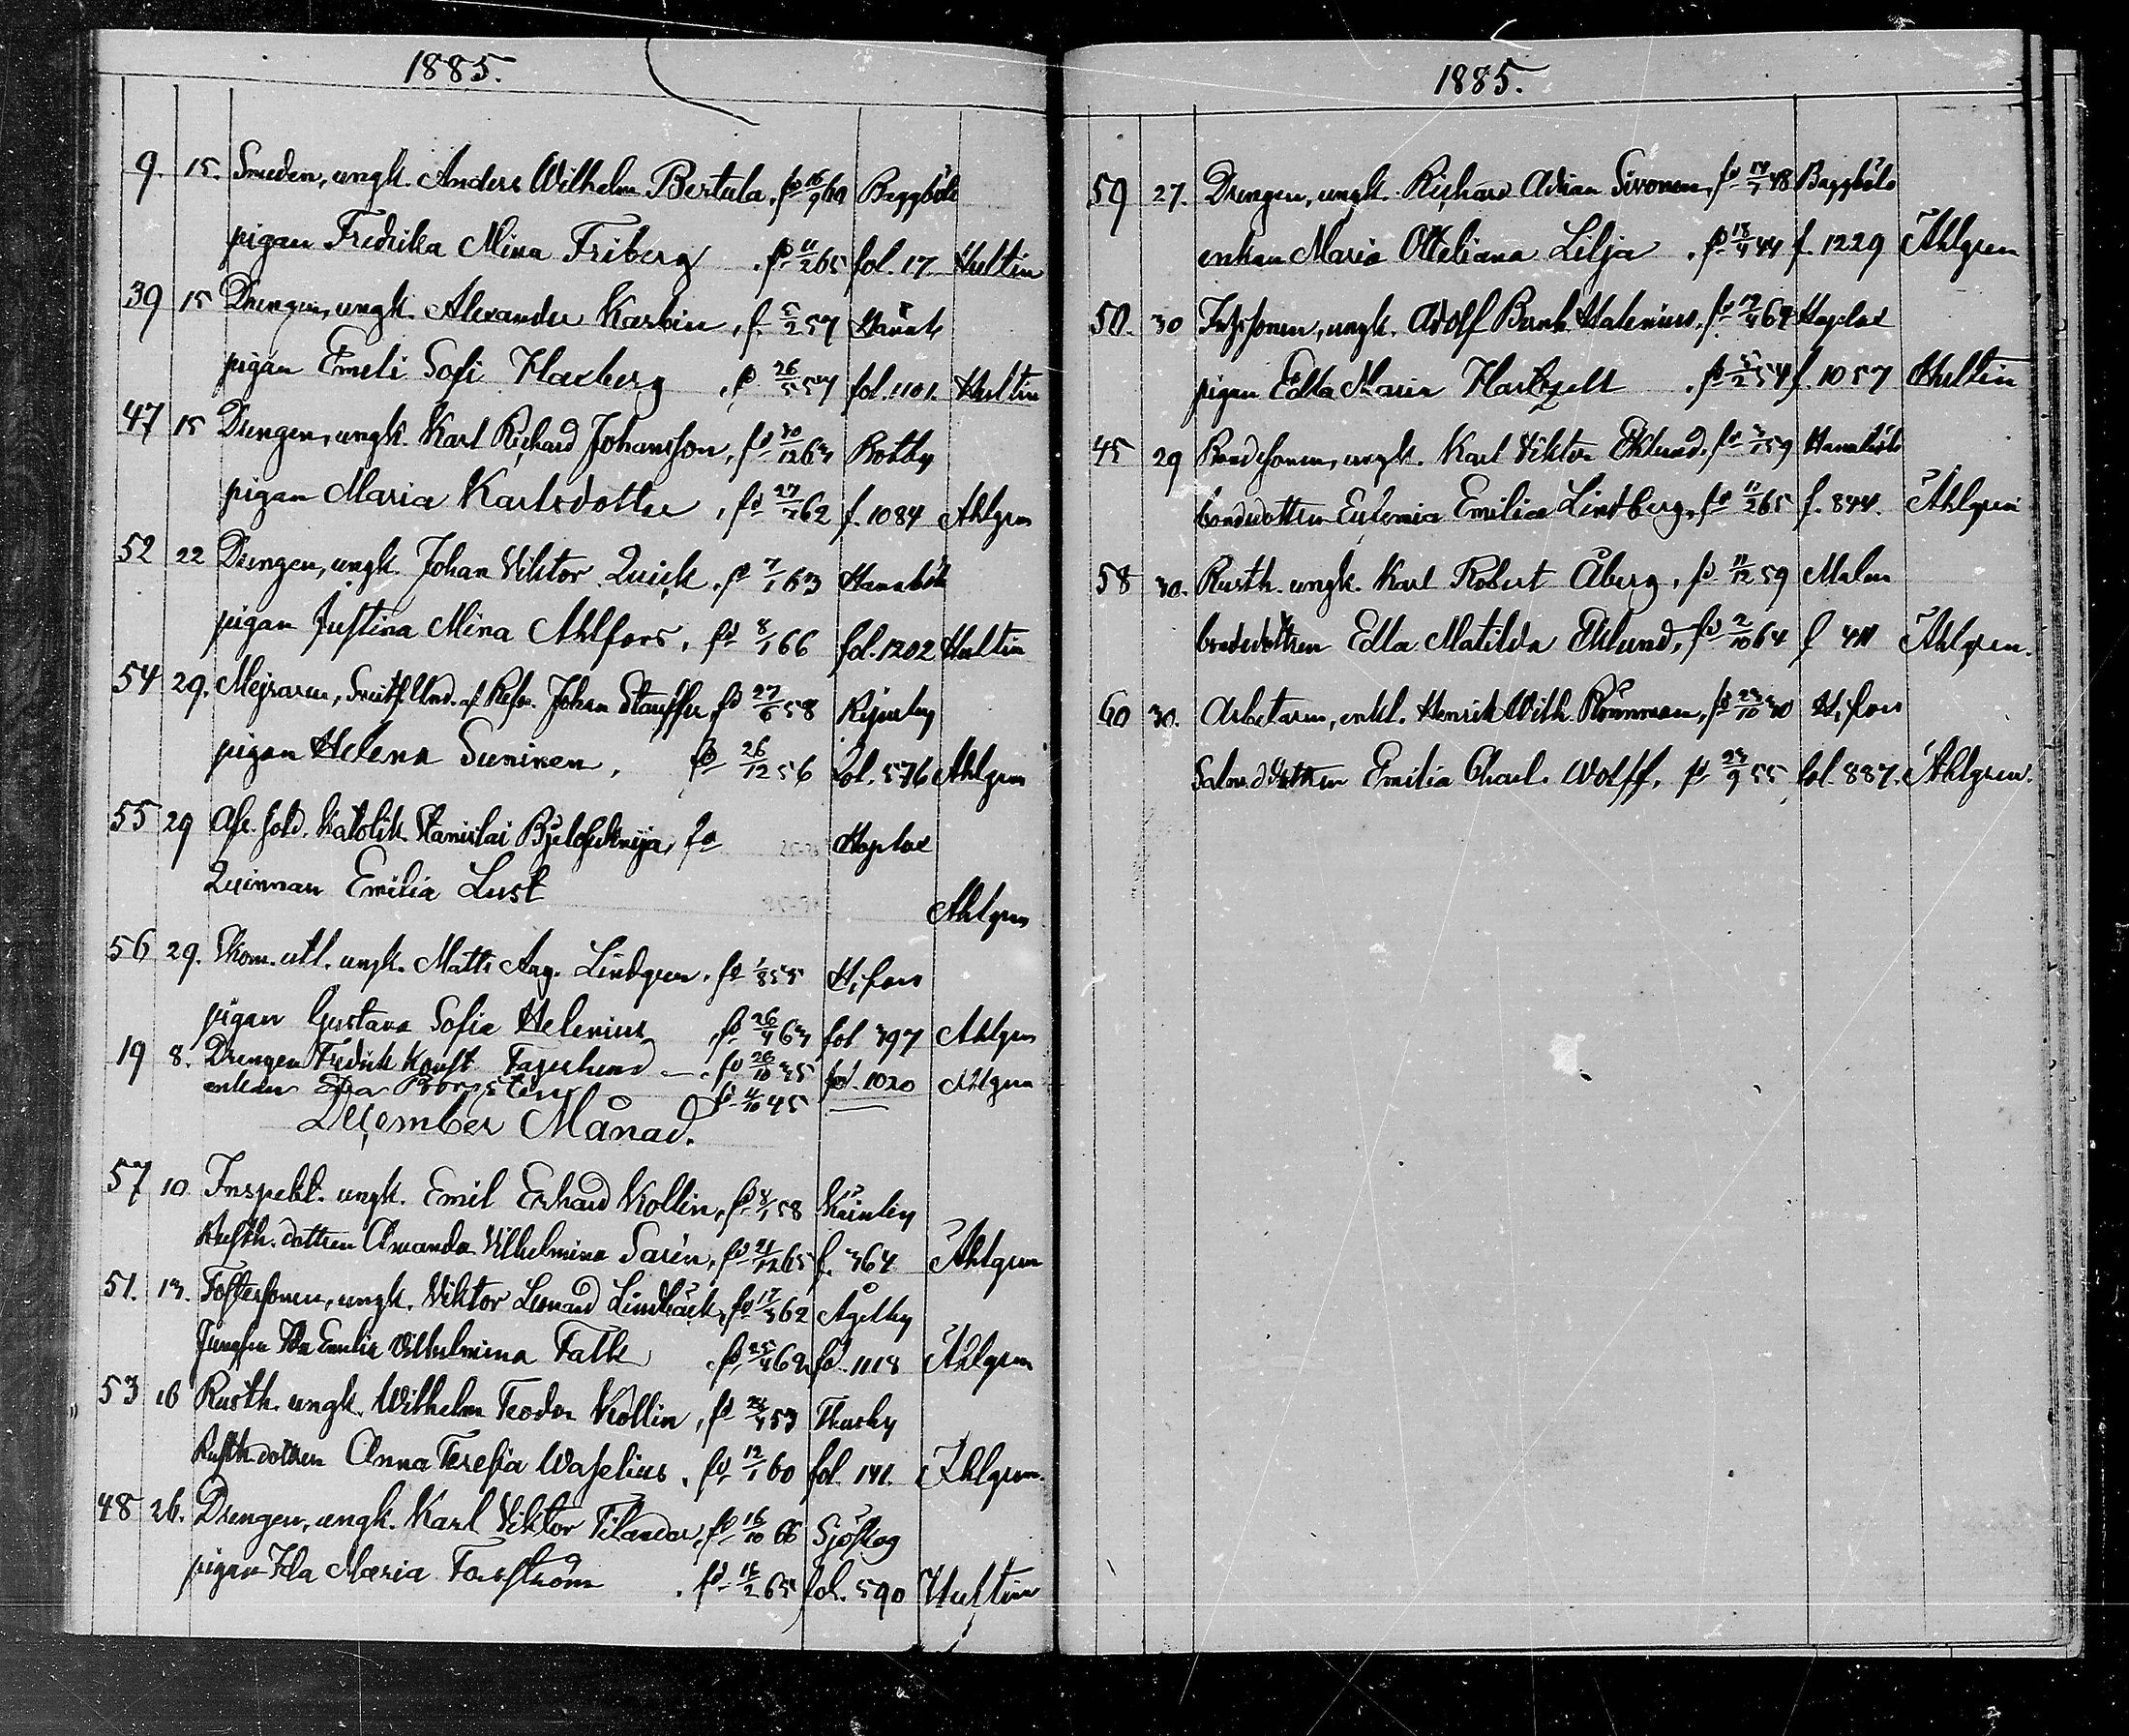 1885.
9. 15. Smeden, ungk. Anders Wilhelm Bertula, fd 16/9 60 Baggböle
pigan Fredrika Mina Friberg . fd 11/2 65 fol. 17 Hultin
39 15 Drengen, ungk. Alexander Karbin, f. 5/2 57
pigan Emeli Sofi Flaxberg , fd 26/5 57 fol. 1101. Hultin
47 15 Drengen, ungk. Karl Richard Johansson, fd 30/12 63 Botby
pigan Maria Karlsdotter , fd 27/7 62 f. 1084 Ahlgren
52 22 Drengen, ungk. Johan Viktor Quick. fd 7/1 63 Hanaböle
pigan Justina Mina Ahlfors, fd 8/1 66 fol. 1202 Hultin
54 29. Mejraren, Johan Stauffer fd 27/6 58
pigan Helena Suninen, fd 26/12 56 fol. 576 Ahlgren
55 29 Afsk. sold. Katolik. Stanislai fd Hoplax
Quinnan Emilia Lust Ahlgren
56 29. Skom. utl. ungk. Matts Aug. Lindgren. fd 1/8 55 H,fors
pigan Gustava Sofia Helenius , fd 26/4 63 fol 397 Ahlgren
19 8. Drengen Fredrik Konst. Fagerlund — . fd 26/10 35 fol. 1020 Ahlgren
enkan Eva Borgsten fd 11/10 45
December Månad.
57 10 Inspekt. ungk. Emil Erhard Kollin, fd 8/1 58
Rusth. dottren Amanda Vilhelmina Sarén, fd 21/12 65 f. 364 Ahlgren
51. 13. Fostersonen, ungk. Viktor Leonard Lindbäck, fd 17/3 62 Ågelby
Jungfrun Ida Emilia Vilhelmina Falk , fd 25/4 62 fol. 1118 Ahlgren
53 16 Rusth. ungk. Wilhelm Teodor Kollin, fd 24/4 53 Thusby
Rusth.dottren Anna Teresia Waselius. fd 12/1 60 fol. 141. Ahlgren
48 26. Drengen, ungk. Karl Viktor Tilander, fd 16/10 66 Sjöskog
pigan Ida Maria Forsström . fd 16/2 65 fol. 590 Hultin
1885.
59 27. Drengen, ungk. Richard Adrian Sivonen, fd 14/7 48 Baggböle
enkan Maria Otteliana Lilja . fd 18/4 44 f. 1229 Ahlgren
50. 30 ungk. Adolf Bernh. Halenius. fd 12/4 64 Hoplax
pigan Edla Maria . fd 5/2 54 f. 1057 Hultin
45 29 Bondesonen, ungk. Karl Viktor Eklund. fd 3/1 59 Hanaböle
bondedottren Eufemia Emilia Lindberg, fd 11/2 65 f. 844. Ahlgren
58 30. Rusth. ungk. Karl Robert Åberg, fd 11/12 59 Malm
bondedottren Edla Matilda Eklund, fd 2/10 64 f 411 Ahlgren.
60 30. Arbetaren, enkl. Henrik Wilh. Rönnman, fd 23/10 40 H,fors
dottren Emilia Charl. Wolff. fd 23/9 55 fol. 887. Ahlgren.